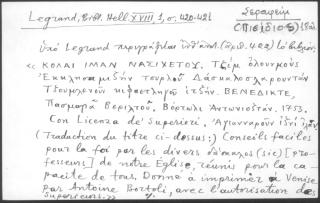 Legrand, Bibl. Hell. XVIII 1, σ. 420-421
Σεραφείμ
(Πισίδιος)
Ὑπὸ Legrand περιγράφεται (ἀρ. 422) τὸ βιβλίον:
« ΚΟΛΑΙ ΙΜΑΝ ΝΑΣΙΧΕΤΟΥ.
Ἐκκλησιαμηζδὴν τουρλοῦ Δάσκαλοσλαρουντὰν
ΒΕΝΕΔΙΚΤΕ,
Πασμαγὰ Βεριλτοῦ. Βόρτωλι Ἀντωνιοσδάν. 1753.
Con Licenza de' Superiori.
(Traduction du titre ci-dessus:) Conseils faciles
pour la foi par les divers dáskalos (sic) [pro-
fesseurs] de notre Église, réunis pour la ca-
pacité de tous. Donné à imprimer à Venise
par Antoine Bortoli, avec l'autorisation des
supérieurs. »